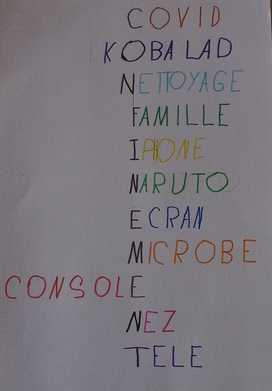 COVID
KOBALAD
NETTOYAGE
FAMILLE
IPHONE
NARUTO
ECRAN
MICROBE
CONSOLE
NEZ
TELE